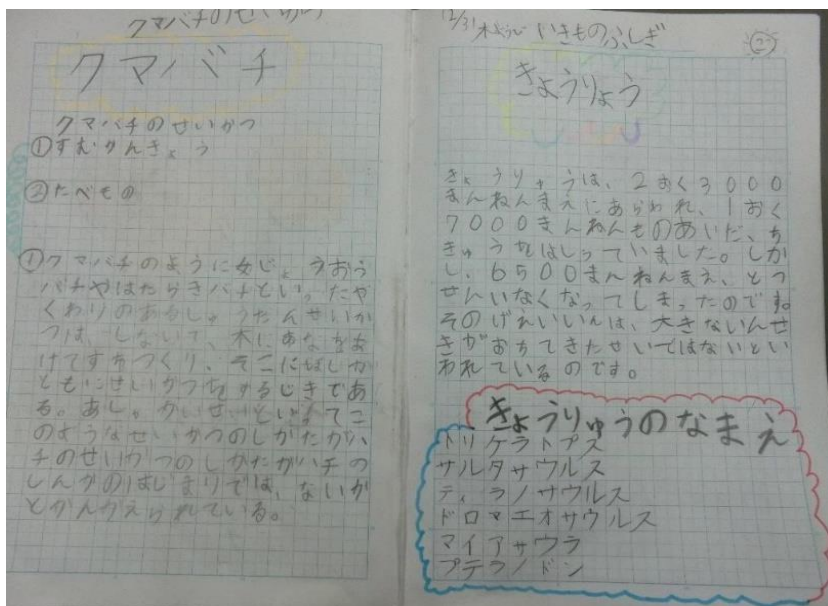 クマバチのせいかつ
クマバチ
クマバチのせいかつ
①すむかんきょう
②たべもの
①クマバチのように女じょうおう
バチやはたらきバチといったや
くわりのあるしゅうだんせいかつ
つは、しないで、木にあなをあ
けてすをつくり、そこにはしが
ともにせいかつをするじきであ
る。あし、かいせいといってこ
のようなせいかつのしかたがハ
チのせいかつのしかたがハチの
しんかのはじまりでは、ないか
とかんがえられている。
12/31 木ようび いきものふしぎ
②
きょうりょう
きょうりゅうは、2おく3000
まんねんまえにあらわれ、1おく
7000まんねんものあいだ、ち
きゅうをはしっていました。しか
し、6500まんねんまえ、とつ
ぜんいなくなってしまったのですね
そのげえいいんは、大きないんせ
きがおちてきたせいではないとい
われているのです。
きょうりゅうのなまえ
トリケラトプス
サルタサウルス
ティラノサウルス
ドロマエオサウルス
マイアサウラ
プテラノドン